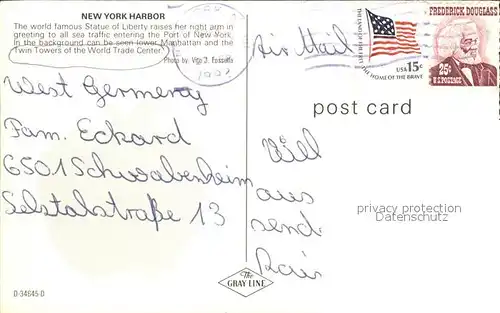 NEW YORK HARBOR
The world famous Statue of Liberty raises her right arm in
greeting to all sea traffic entering the Port of New York.
In the background can be seen lower Manhattan and the
Twin Towers of the World Trade Center.
Photo by Vito J. Fossella
Air Mail
THE LAND OF THE FREE
USA 15c
THE HOME OF THE BRAVE
FREDERICK DOUGLASS
25c
U.S. POSTAGE
post card
West Germany
Fam. Eckard
6501 Schwabenheim
Selstalstraße 13
aus
send
privacy protection
Datenschutz
The
GRAY LINE
D-34645-D